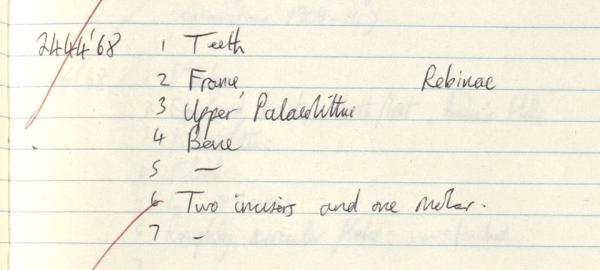 2444'68 1 Teeth
2 France, Rebinac
3 Upper Palaeolithic
4 Bone
5 —
6 Two incisors and one molar.
7 -